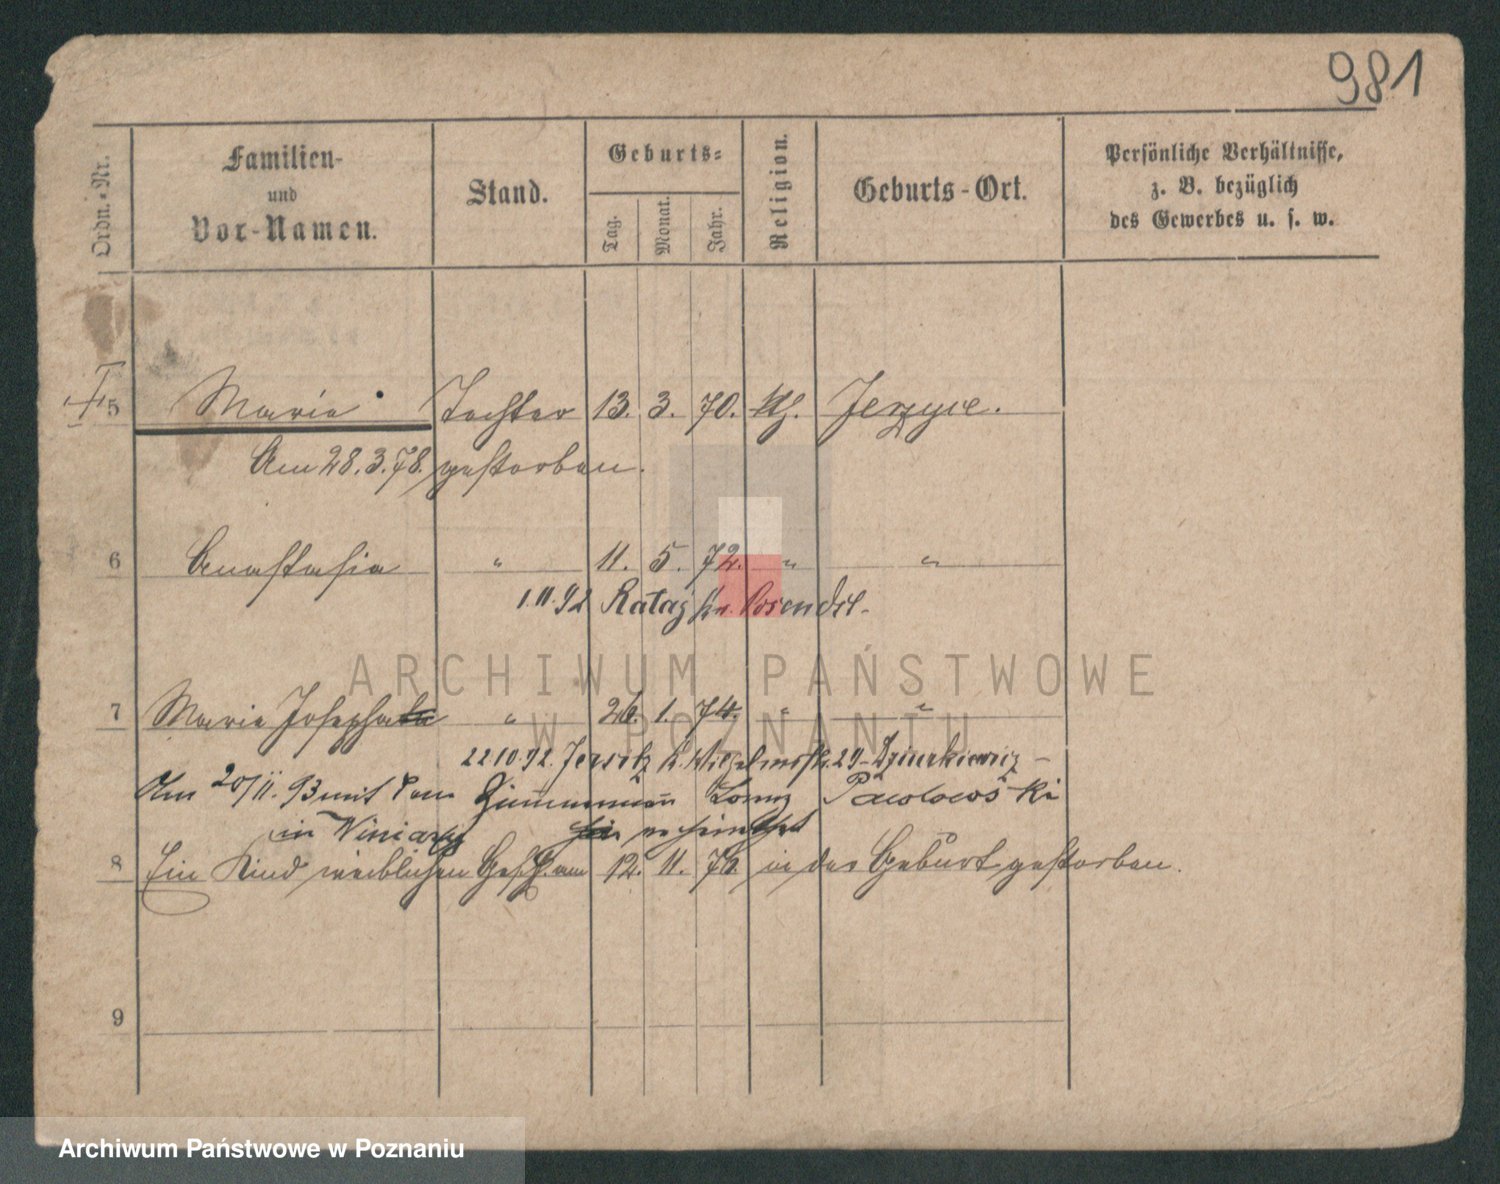 981
Ordn.-Nr.
Familien-
und
Vor-Namen.
Stand.
Geburts-
Tag.
Monat.
Jahr.
Religion.
Geburts-Ort.
Persönliche Verhältnisse,
z. B. bezüglich
des Gewerbes u. s. w.
5 Marie Tochter 13. 3. 70. kth. Jerzyce.
Am 28.3.78. gestorben.
6 Anastasia " 11. 5. 72. " "
1.11.92 Rataj Posen
7 Marie Josepha " 26. 1. 74. " "
22 10. 92. Jersitz 29
Am 20/11. 93 mit dem Zimmermann Lorenz Pawlowski
in Winiary verheirathet
8 Ein Kind weiblichen Geschl. am 12. 11. 76 in der Geburt gestorben.
9
ARCHIWUM PAŃSTWOWE
W POZNANIU
Archiwum Państwowe w Poznaniu